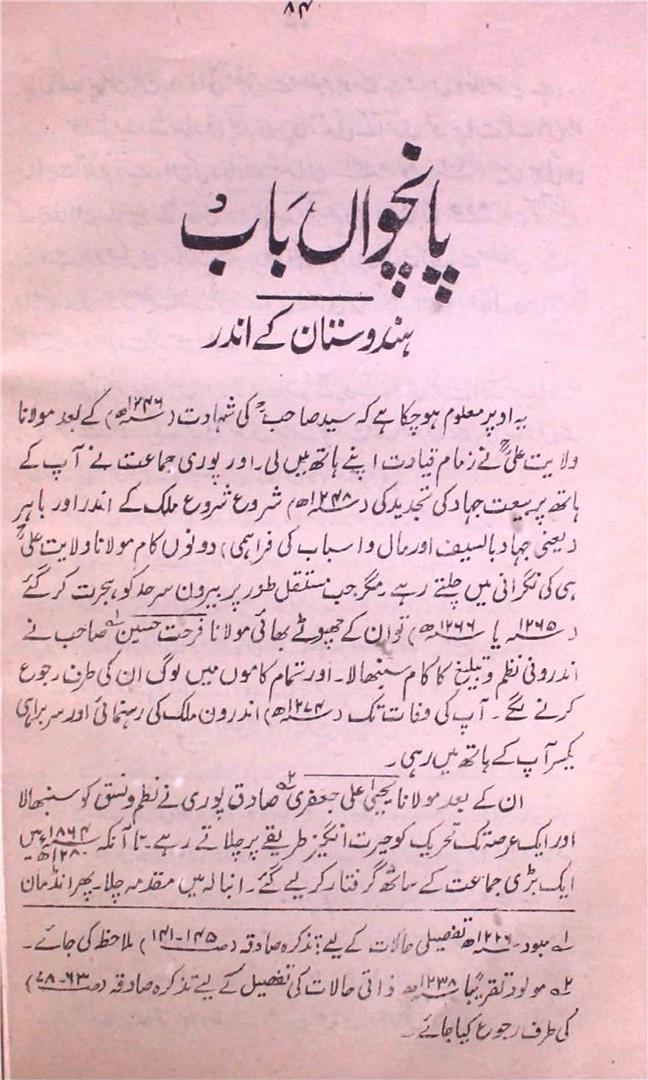 ۸۴
پانچواں باب
ہندوستان کے اندر
یہ اوپر معلوم ہو چکا ہے کہ سید صاحبؒ کی شہادت (۱۲۴۶ھ) کے بعد مولانا
ولایت علیؒ نے زمام قیادت اپنے ہاتھ میں لی۔ اور پوری جماعت نے آپ کے
ہاتھ پر بیعت جہاد کی تجدید کی (۱۲۴۸ھ) شروع شروع ملک کے اندر اور باہر
(یعنی جہاد بالسیف اور مال و اسباب کی فراہمی) دونوں کام مولانا ولایت علیؒ
ہی کی نگرانی میں چلتے رہے۔ مگر جب مستقل طور پر بیرون سرحد کو ہجرت کر گئے
(۱۲۶۵ یا ۱۲۶۶ھ) تو ان کے چھوٹے بھائی مولانا فرحت حسین ۱ صاحب نے
اندرونی نظم و تبلیغ کا کام سنبھالا۔ اور تمام کاموں میں لوگ ان کی طرف رجوع
کرنے لگے۔ آپ کی وفات تک (۱۲۷۴ھ) اندرون ملک کی رہنمائی اور سربراہی
یکسر آپ کے ہاتھ میں رہی۔
ان کے بعد مولانا یحییٰ علی جعفری ۲ صادق پوری نے نظم و نسق کو سنبھالا
اور ایک عرصہ تک تحریک کو حیرت انگیز طریقے پر چلاتے رہے۔ تا آنکہ ۱۸۶۴ ۱۲۸۰ھ میں
ایک بڑی جماعت کے ساتھ گرفتار کر لیے گئے۔ انبالہ میں مقدمہ چلا۔ پھر انڈمان
۱ مولود ۱۲۲۶ھ تفصیلی حالات کے لیے: تذکرہ صادقہ (ص ۱۴۵-۱۴۱) ملاحظہ کی جائے۔
۲ مولود تقریباً ۱۲۳۸ھ ذاتی حالات کی تفصیل کے لیے تذکرہ صادقہ (ص ۶۳-۷۸)
کی طرف رجوع کیا جائے۔